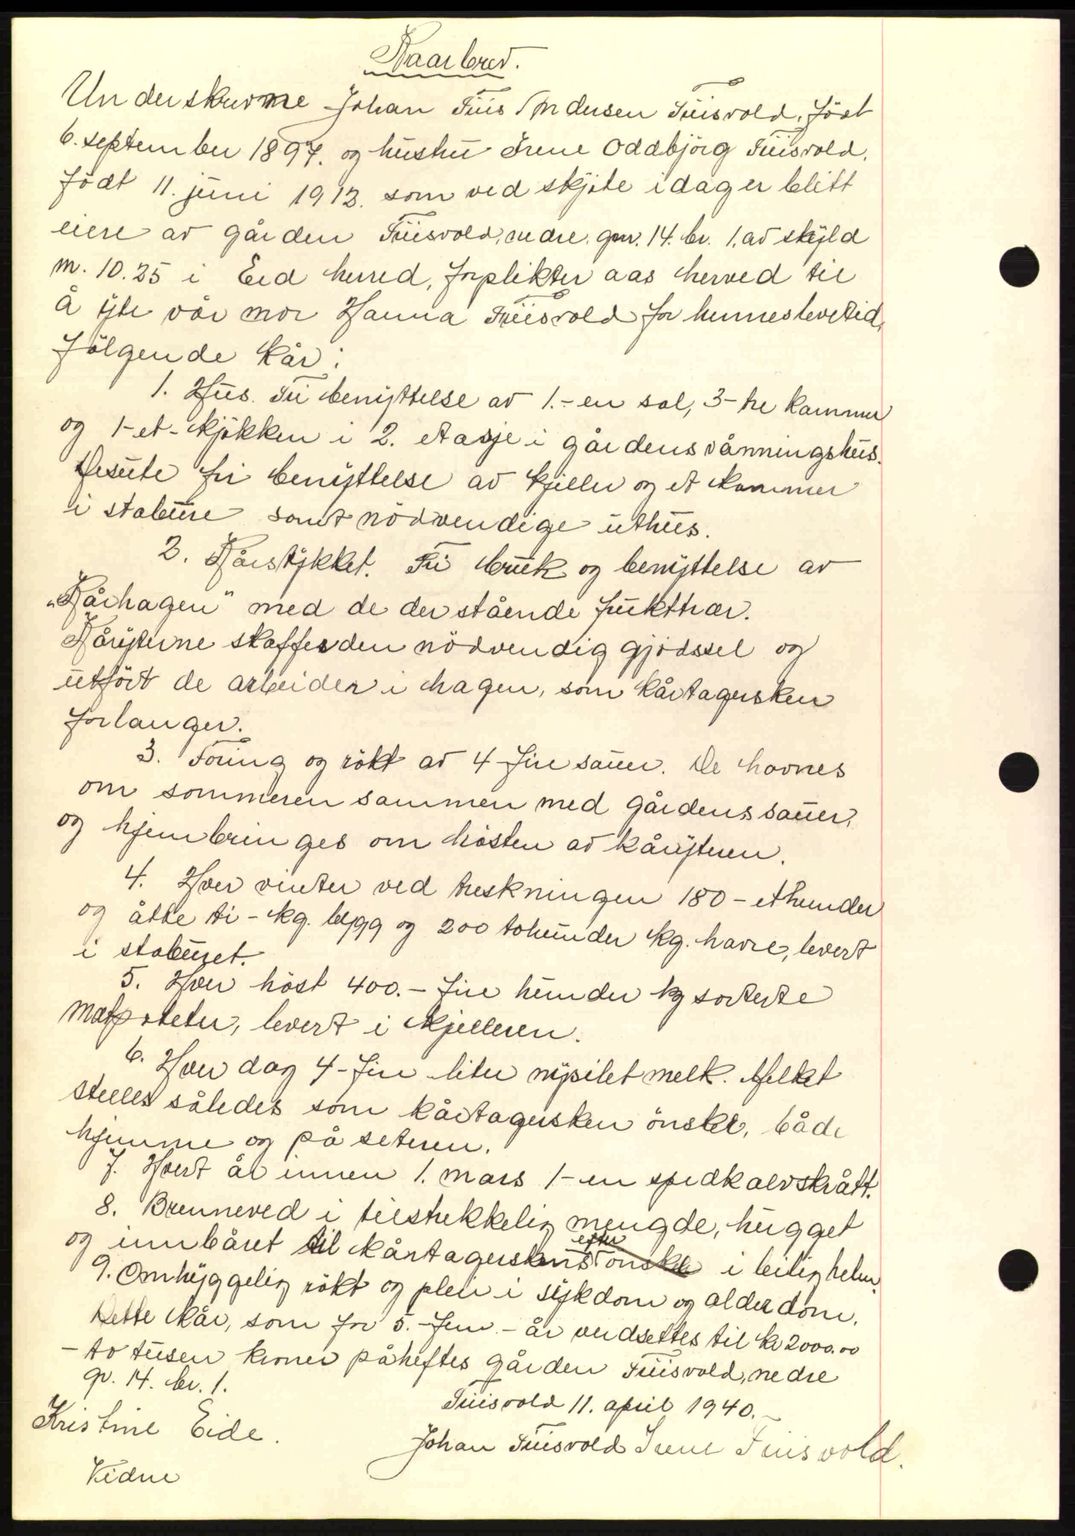 Kaarbrev.
Underskrevne Johan Friis Andersen Friisvold, födt
6. september 1897. og hustru Irene Oddbjörg Friisvold,
födt 11. juni 1913. som ved skjöte idag er blitt
eiere av gården Friisvold, nedre, gnr. 14. br. 1. av skyld
m. 10.25 i Eid herred, forplikter oss herved til
å yte vår mor Hanna Friisvold for hennes levetid,
fölgende kår:
1. Hus. Fri benyttelse av 1.- en sal, 3- tre kammer
og 1-et- kjökken i 2. etasje i gårdens våningshus.
Desuten fri benyttelse av kjeller og et kammer
i stabure samt nödvendige uthus.
2. Kårstykket. Fri bruk og benyttelse av
"Kårhagen" med de der stående frukttrær.
Kåryterne skaffer den nödvendig gjödssel og
utfört de arbeider i hagen, som kårtagersken
forlanger.
3. Foring og rökt av 4-fire sauer. De havnes
om sommeren sammen med gårdens sauer,
og hjembringes om hösten av kåryteren.
4. Hver vinter ved treskningen 180 - ethundre
og åtte ti - kg. bygg og 200 tohundre kg. havre, levert
i staburet.
5. Hver höst 400.- fire hundre kg sorterte
matpoteter, levert i kjelleren.
6. Hver dag 4-fire liter nysilet melk. Melket
stelles således som kårtagersken önsker, både
hjemme og på seteren.
7. Hvert år innen 1. mars 1- en spedkalvskrått.
8. Brenneved i tilstrekkelig mengde, hugget
og innbåret til kårtagerskens efter önske i leiligheten.
9. Omhyggelig rökt og pleie i sykdom og alderdom.
Dette kår, som for 5.- fem - år verdsettes til kr 2000.00
- to tusen kroner påheftes gården Friisvold, nedre
gr. 14. br. 1.
Friisvold 11. april 1940.
Kristine Eide.
Johan Friisvold Irene Friisvold.
Vidne